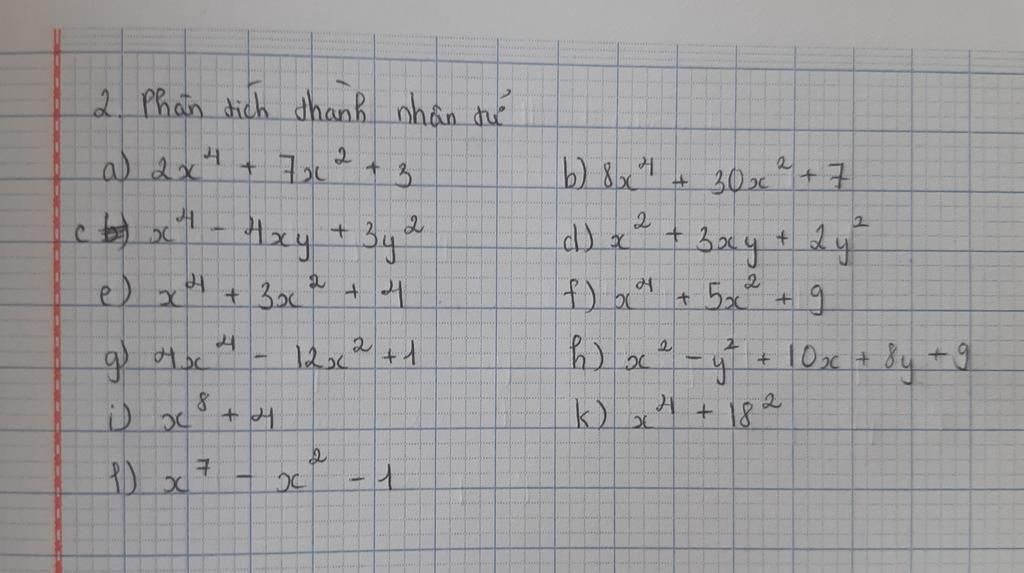 2. Phân tích thành nhân tử
a) 2x⁴ + 7x² + 3 b) 8x⁴ + 30x² + 7
c) x⁴ - 4xy + 3y² d) x² + 3xy + 2y²
e) x⁴ + 3x² + 4 f) x⁴ + 5x² + 9
g) 4x⁴ - 12x² + 1 h) x² - y² + 10x + 8y + 9
i) x⁸ + 4 k) x⁴ + 18²
l) x⁷ - x² - 1